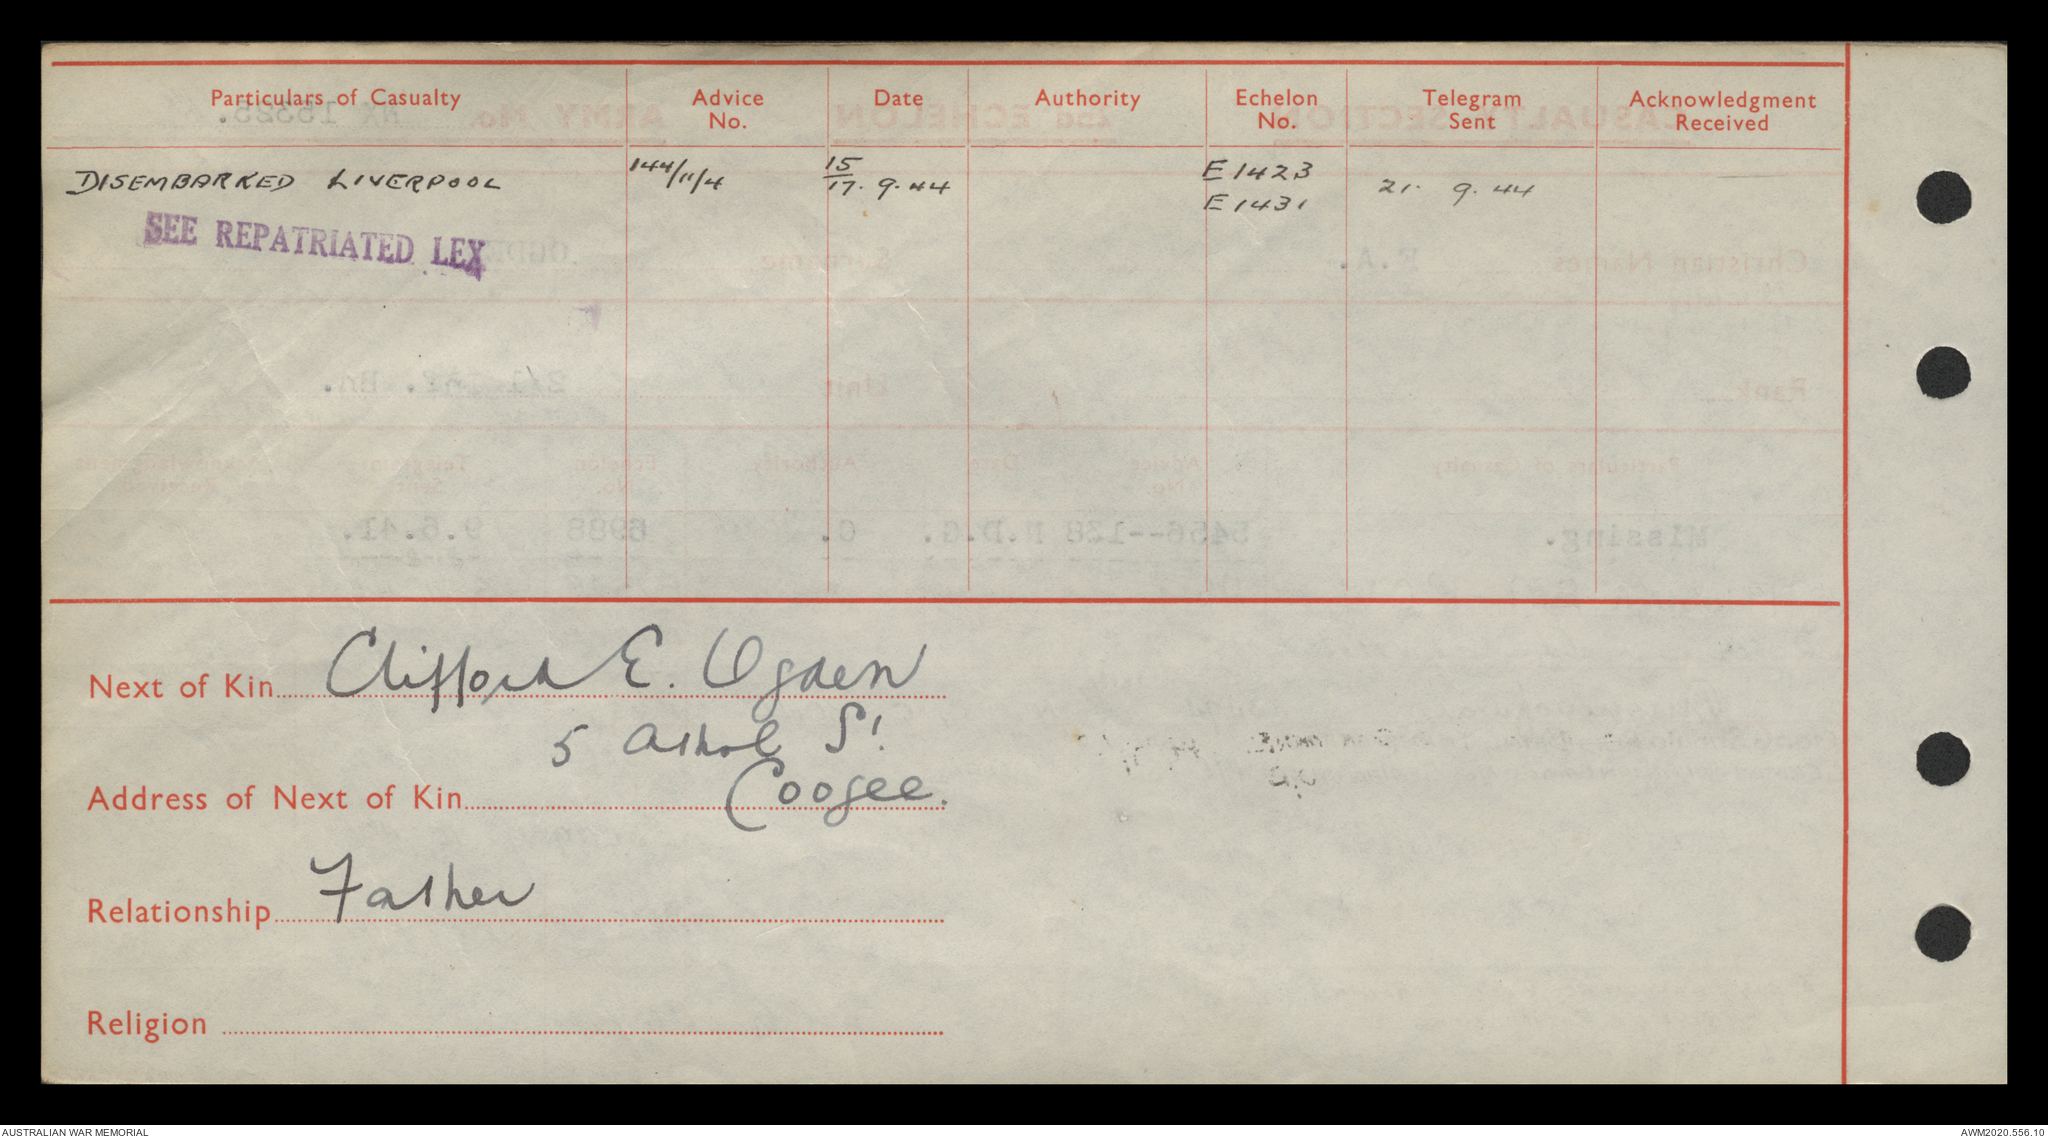 Particulars of Casualty Advice No. Date Authority Echelon No. Telegram Sent Acknowledgment Received
DISEMBARKED LIVERPOOL 144/11/4 15/17. 9. 44 E 1423 21. 9. 44
E 1431
SEE REPATRIATED LEX
Next of Kin Clifford E. Ogden
5 Athol St.
Address of Next of Kin Coogee.
Relationship Father
Religion
AUSTRALIAN WAR MEMORIAL AWM2020.556.10